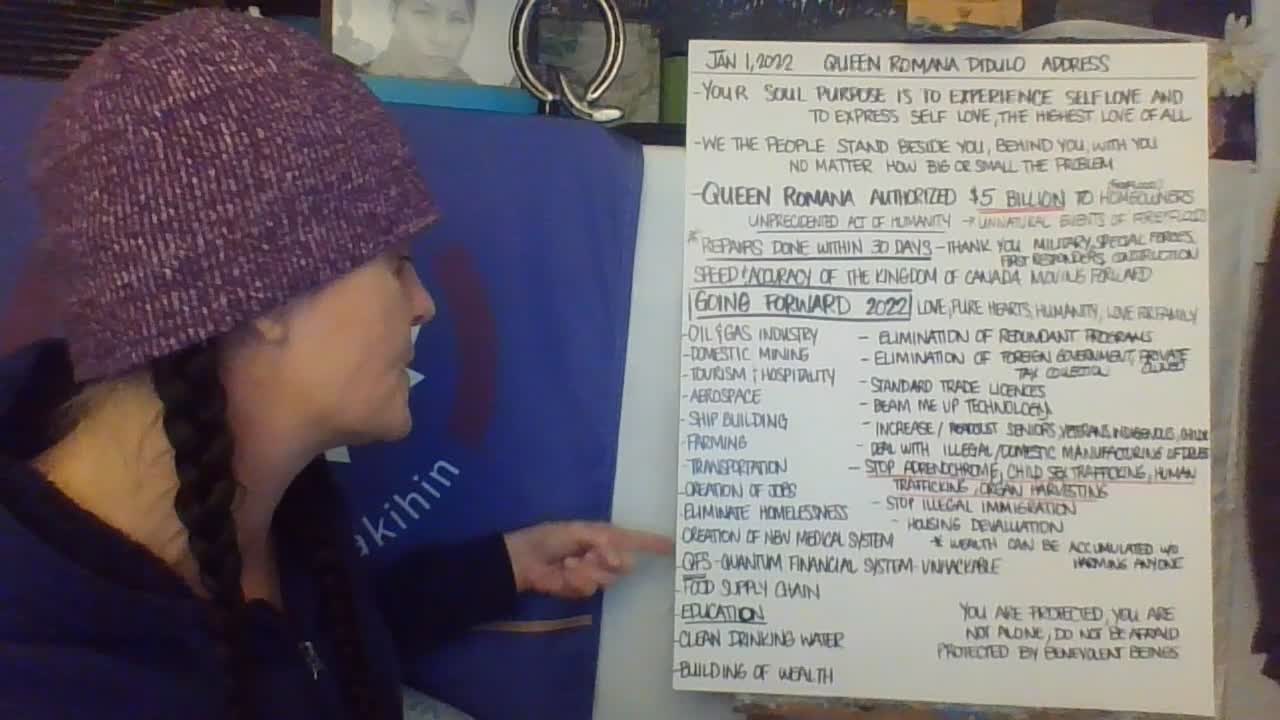 JAN 1, 2022 QUEEN ROMANA DIDULO ADDRESS
- YOUR SOUL PURPOSE IS TO EXPERIENCE SELF LOVE AND
TO EXPRESS SELF LOVE, THE HIGHEST LOVE OF ALL
- WE THE PEOPLE STAND BESIDE YOU, BEHIND YOU, WITH YOU
NO MATTER HOW BIG OR SMALL THE PROBLEM
- QUEEN ROMANA AUTHORIZED $5 BILLION TO HOMEOWNERS
UNPRECIDENTED ACT OF HUMANITY → UNNATURAL EVENTS OF
* REPAIRS DONE WITHIN 30 DAYS - THANK YOU MILITARY, SPECIAL FORCES,
FIRST RESPONDERS, CONSTRUCTION
SPEED & ACCURACY OF THE KINGDOM OF CANADA MOVING FORWARD
GOING FORWARD 2022 LOVE, PURE HEARTS, HUMANITY, LOVE FOR FAMILY
- OIL & GAS INDUSTRY
- DOMESTIC MINING
- TOURISM & HOSPITALITY
- AEROSPACE
- SHIP BUILDING
- FARMING
- TRANSPORTATION
- CREATION OF JOBS
- ELIMINATE HOMELESSNESS
CREATION OF NEW MEDICAL SYSTEM
- QFS - QUANTUM FINANCIAL SYSTEM - UNHACKABLE
- FOOD SUPPLY CHAIN
- EDUCATION
- CLEAN DRINKING WATER
- BUILDING OF WEALTH
- ELIMINATION OF REDUNDANT PROGRAMS
- ELIMINATION OF FOREIGN GOVERNMENT, PRIVATE
TAX COLLECTION OWNED
- STANDARD TRADE LICENCES
- BEAM ME UP TECHNOLOGY
- INCREASE / READJUST SENIORS, VETERANS, INDIGENOUS,
- DEAL WITH ILLEGAL/DOMESTIC MANUFACTURING OF DRUGS
- STOP ADRENOCHROME, CHILD SEX TRAFFICKING, HUMAN
TRAFFICKING, ORGAN HARVESTING
- STOP ILLEGAL IMMIGRATION
- HOUSING DEVALUATION
* WEALTH CAN BE ACCUMULATED W/O
HARMING ANYONE
YOU ARE PROTECTED, YOU ARE
NOT ALONE, DO NOT BE AFRAID
PROTECTED BY BENEVOLENT BEINGS
akihin